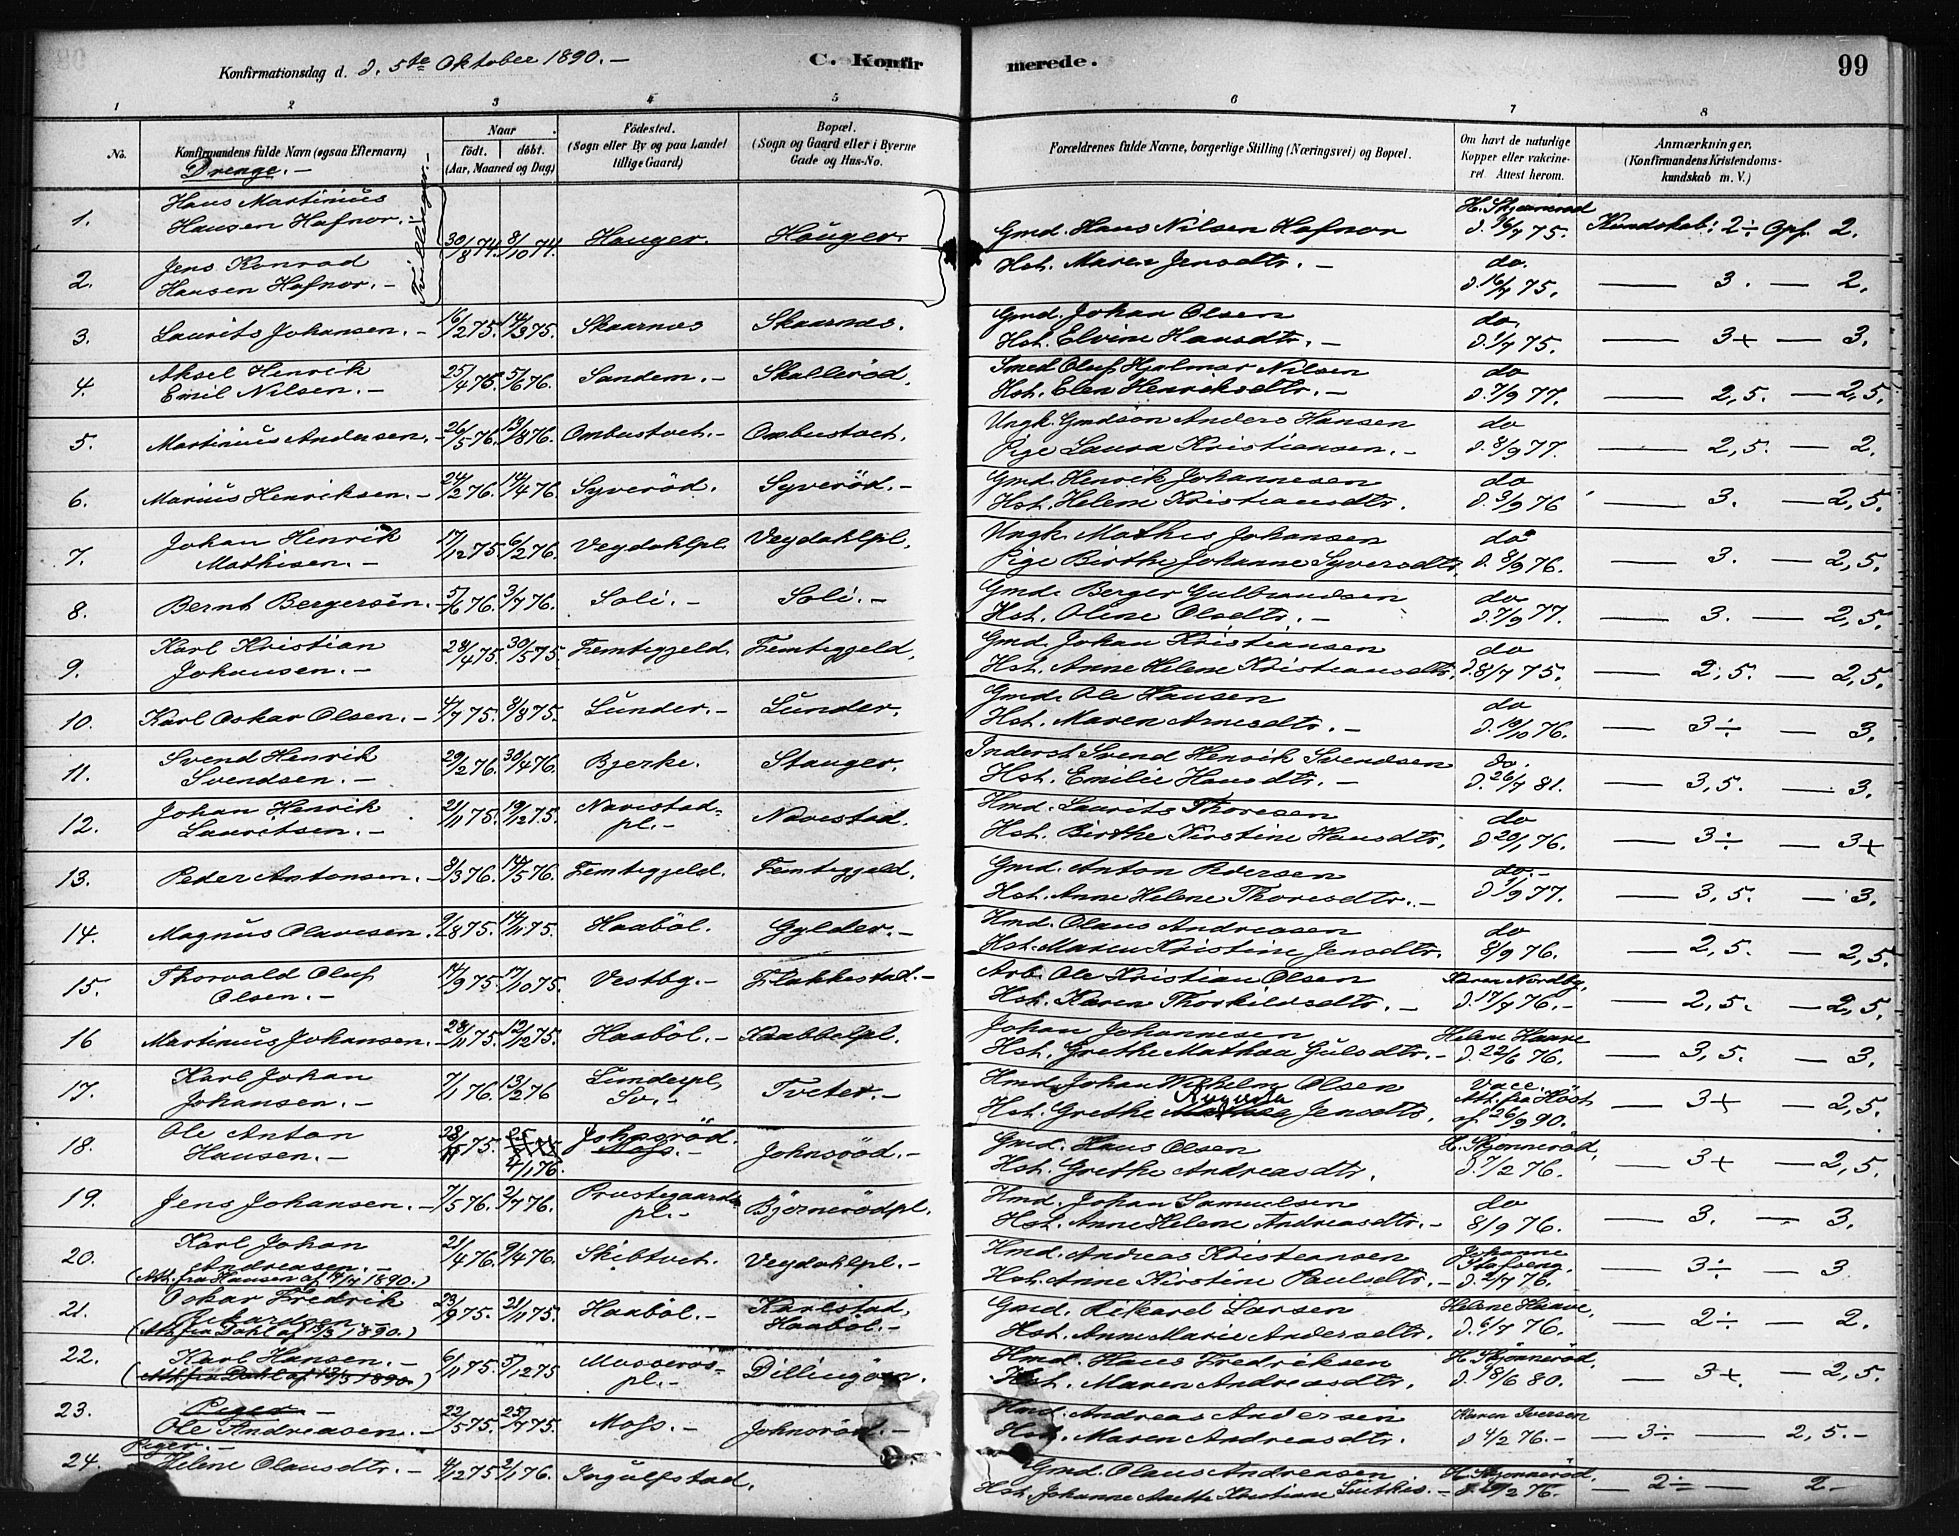 Konfirmationsdag d. d. 5te Oktober 1890. –
C. Konfirmerede.
99
1 2 3 4 5 6 7 8
No.
Konfirmandens fulde Navn (ogsaa Efternavn)
Drenge. –
Naar
födt. döbt.
(Aar, Maaned og Dag)
Födested.
(Sogn eller By og paa Landet
tillige Gaard)
Bopæl.
(Sogn og Gaard eller i Byerne
Gade og Hus-No.
Forældrenes fulde Navne, borgerlige Stilling (Næringsvei) og Bopæl.
Om havt de naturlige
Kopper eller vakcine-
ret Attest herom.
Anmærkninger.
(Konfirmandens Kristendoms-
kundskab m. V.)
1. Hans Martinius
Hansen Hafnor. – Tvillinger. 30/8 74. 8/10 74. Hauger. Hauger. Gmd. Hans Nilsen Hafnor H. Skjönneröd d. 16/7 75. Kundskab: 2÷ Opf. 2.
2. Jens Konrad
Hansen Hafnor. – Hst. Maren Jensdtr. – do. d. 16/7 75. — 3. — 2.
3. Laurits Johansen. – 16/2 75. 14/3 75. Skaarnes Skaarnes. Gmd. Johan Olsen
Hst. Elvine Hansdtr. – do. d. 1/7 75. — 3+ — 3.
4. Aksel Henrik
Emil Nilsen. – 25/4 76. 5/6 76. Sandem. – Skalleröd. Smed Oluf Hjalmar Nilsen
Hst. Elen Henriksdtr. – do d. 7/9 77. — 2,5. — 2,5.
5. Martinius Andersen. – 26/5 76. 13/8 76. Ombustvet. – Ombustvet. Ungk. Gmdsön Anders Hansen
Pige Laura Kristiansen. – do d. 8/9 77. — 2,5. — 2.
6. Marius Henriksen. – 24/2 76. 14/4 76. Syveröd. Syveröd. – Gmd. Henrik Johannesen
Hst. Helene Kristiansdtr. do d. 3/9 76 — 3. — 2,5.
7. Johan Henrik
Mathisen. – 17/12 75 6/2 76. Veydahlpl. Veydahlpl. Ungk. Mathis Johansen
Pige Birthe Johanne Syversdtr. do d. 8/9 76. — 3. — 2,5.
8. Bernt Bergersen. – 5/6 76. 3/7 76. Soli. – Soli. – Gmd. Berger Gulbrandsen
Hst. Oline Olsdtr. – do d. 7/9 77. — 3. — 2,5.
9. Karl Kristian
Johansen. – 28/4 75. 30/5 75 Femtegjeld. Femtegjeld. Gmd. Johan Kristiansen
Hst. Anne Helene Kristiansdtr. do d. 8/7 75. — 2,5. — 2,5.
10. Karl Oskar Olsen. – 4/7 75. 8/8 75. Lunder. – Lunder. Gmd. Ole Hansen
Hst. Maren Arnesdtr. – do d. 19/10 76. — 3÷ — 3.
11. Svend Henrik
Svendsen. – 29/2 76. 30/4 76. Bjerke. Stanger. Inderst Svend Henrik Svendsen
Hst. Emilie Hansdtr. – do. d. 26/7 81. — 3,5. — 3.
12. Johan Henrik
Lauritsen. – 21/11 75. 19/12 75. Navestad-
pl. – Navestad. Hmd. Laurits Thoresen
Hst. Birthe Kirstine Hansdtr. do d. 20/1 76. — 3÷ — 3+
13. Peder Antonsen. – 8/3 76. 14/5 76. Femtegjeld. Femtegjeld. Gmd. Anton Pedersen
Hst. Anne Helene Thoresdtr. – do. – d. 1/9 77. — 3,5. — 3.
14. Magnus Olavesen. 9/8 75. 14/11 75. Haaböl. Gylder. – Hmd. Olaus Andreasen
Hst. Maren Kristine Jensdtr. do 8/9 76. — 2,5. — 2,5.
15. Thorvald Oluf
Olsen. – 14/9 75 17/10 75. Vestby. – Flakkestad. – Arb. Ole Kristian Olsen
Hst. Karen Thorkildsdtr. – Karen Nordby. d. 17/7 76. – — 2,5. — 2,5.
16 Martinius Johansen. – 28/11 75. 12/12 75. Haaböl. – Kaabbelpl. Johan Johannesen
Hst. Grethe Mathea Gulsdtr. – Helene Haave d. 22/6 76. — 3,5. — 3.
17. Karl Johan
Johansen. – 7/1 76. 13/2 76 Lunderpl,
Sv. – Tveter. – Hmd. Johan Wilhelm Olsen
Augusta
Hst. Grethe Jensdtr. Vacc. Att. fra Höst af 26/9 90. — 3+ — 2,5.
18. Ole Anton
Hansen. – 28/11 75. 5/1 76. Johnsröd.
Moss. – Johnsröd. – Gmd. Hans Olsen
Hst. Grethe Andreasdtr. H. Skjönneröd, d. 7/2 76. — 3+ — 2,5.
19. Jens Johansen. – 7/5 76. 2/7 76. Prestegaards
pl. – Björnerödpl. Hmd. Johan Samuelsen
Hst. Anne Helene Andreasdtr. – do 8/9 76. — 3. — 3.
20. Karl Johan
Andreasen. –
(Att. fra Hansen af 14/7 1890.) 21/4 76 9/4 76. Skibtvet. Veydahlpl. – Hmd. Andreas Kristensen
Hst. Anne Kirstine Paulsdtr. – Johanne Stafseng. d. 2/7 76. — 3÷ — 3
21. Oskar Fredrik
Rikardsen. –
(Att. fra Dahl af 13/3 1890.) 23/9 75. 21/11 75. Haaböl. – Karlstad,
Haaböl. – Gmd. Rikard Larsen
Hst. Anne Marie Andersdtr. – Helene Haave, d. 6/7 76. — 2÷ — 2.
22. Karl Hansen. –
(Att. fra Dahl af 13/3 1890.) 6/11 75. 5/12 75 Mosseros-
pl. – Dillingöen. Hmd. Hans Fredriksen
Hst. Maren Andreasdtr. H. Skjönneröd, d. 18/6 80. — 3+. — 2,5.
23. Piger –
Ole Andreasen. – 22/5 75. 25/7 75. Moss. – Johnsröd. – Hmd. Andreas Andersen
Hst. Maren Andreasdtr. Maren Iversen d. 4/2 76. – — 3÷ — 2,5. –
24. Piger. –
Helene Olausdtr. – 4/12 75 2/1 76. Ingulfstad. Gmd. Olaus Andreasen
Hst. Johanne Anette Kristian – H. Skjönneröd, d. 19/2 76. — 2÷ — 2 –